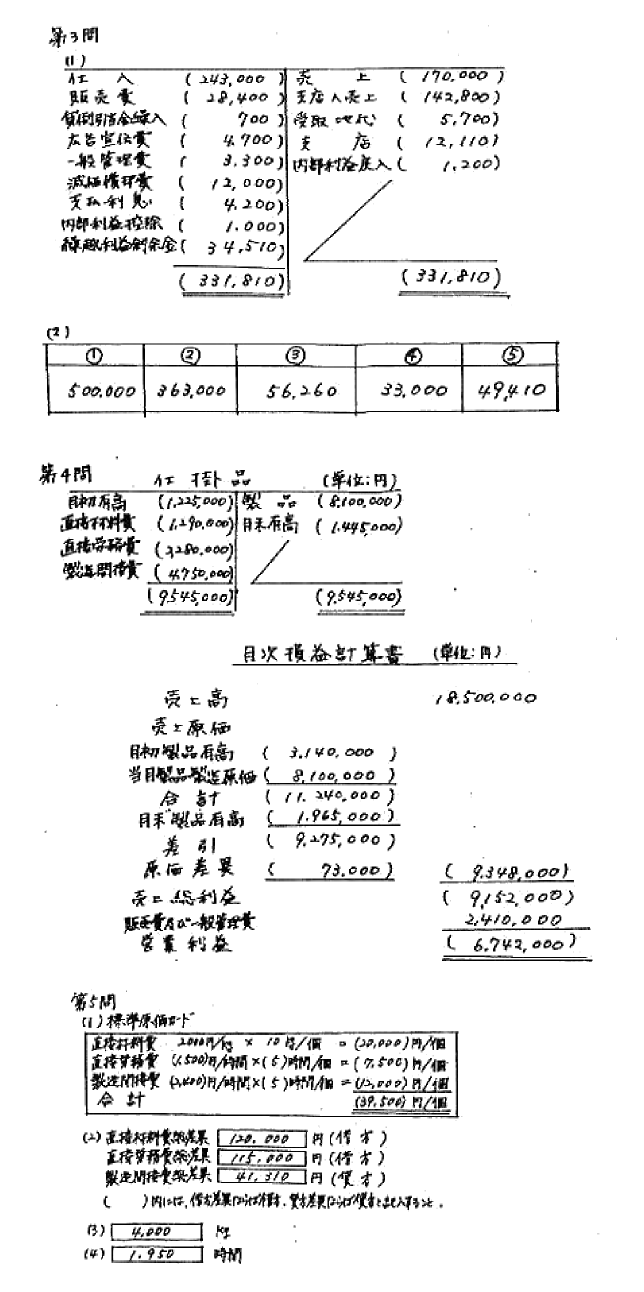 第3問
(1)
仕 入 (243,000) 売 上 (170,000)
販売費 (28,400) 支店へ売上 (142,800)
貸倒引当金繰入 (700) 受取地代 (5,700)
広告宣伝費 (4,700) 支 店 (12,110)
一般管理費 (3,300) 内部利益戻入 (1,200)
減価償却費 (12,000)
支払利息 (4,200)
内部利益控除 (1,000)
繰越利益剰余金 (34,510)
(331,810) (331,810)
(2)
① ② ③ ④ ⑤
500,000 363,000 56,260 33,000 49,410
第4問 仕掛品 (単位:円)
月初有高 (1,225,000) 製 品 (8,100,000)
直接材料費 (1,290,000) 月末有高 (1,445,000)
直接労務費 (2,280,000)
製造間接費 (4,750,000)
(9,545,000) (9,545,000)
月次損益計算書 (単位:円)
売上高 18,500,000
売上原価
月初製品有高 (3,140,000)
当月製品製造原価 (8,100,000)
合 計 (11,240,000)
月末製品有高 (1,965,000)
差 引 (9,275,000)
原価差異 (73,000) (9,348,000)
売上総利益 (9,152,000)
販売費及び一般管理費 2,410,000
営業利益 (6,742,000)
第5問
(1) 標準原価カード
直接材料費 2000円/kg × 10kg/個 = (20,000)円/個
直接労務費 (1,500)円/時間×(5)時間/個 = (7,500)円/個
製造間接費 (2,400)円/時間×(5)時間/個 = (12,000)円/個
合 計 (39,500)円/個
(2) 直接材料費総差異 120,000 円(借方)
直接労務費総差異 115,000 円(借方)
製造間接費総差異 41,310 円(貸方)
( )内には、借方差異ならば借方、貸方差異ならば貸方と記入すること。
(3) 4,000 kg
(4) 1,950 時間